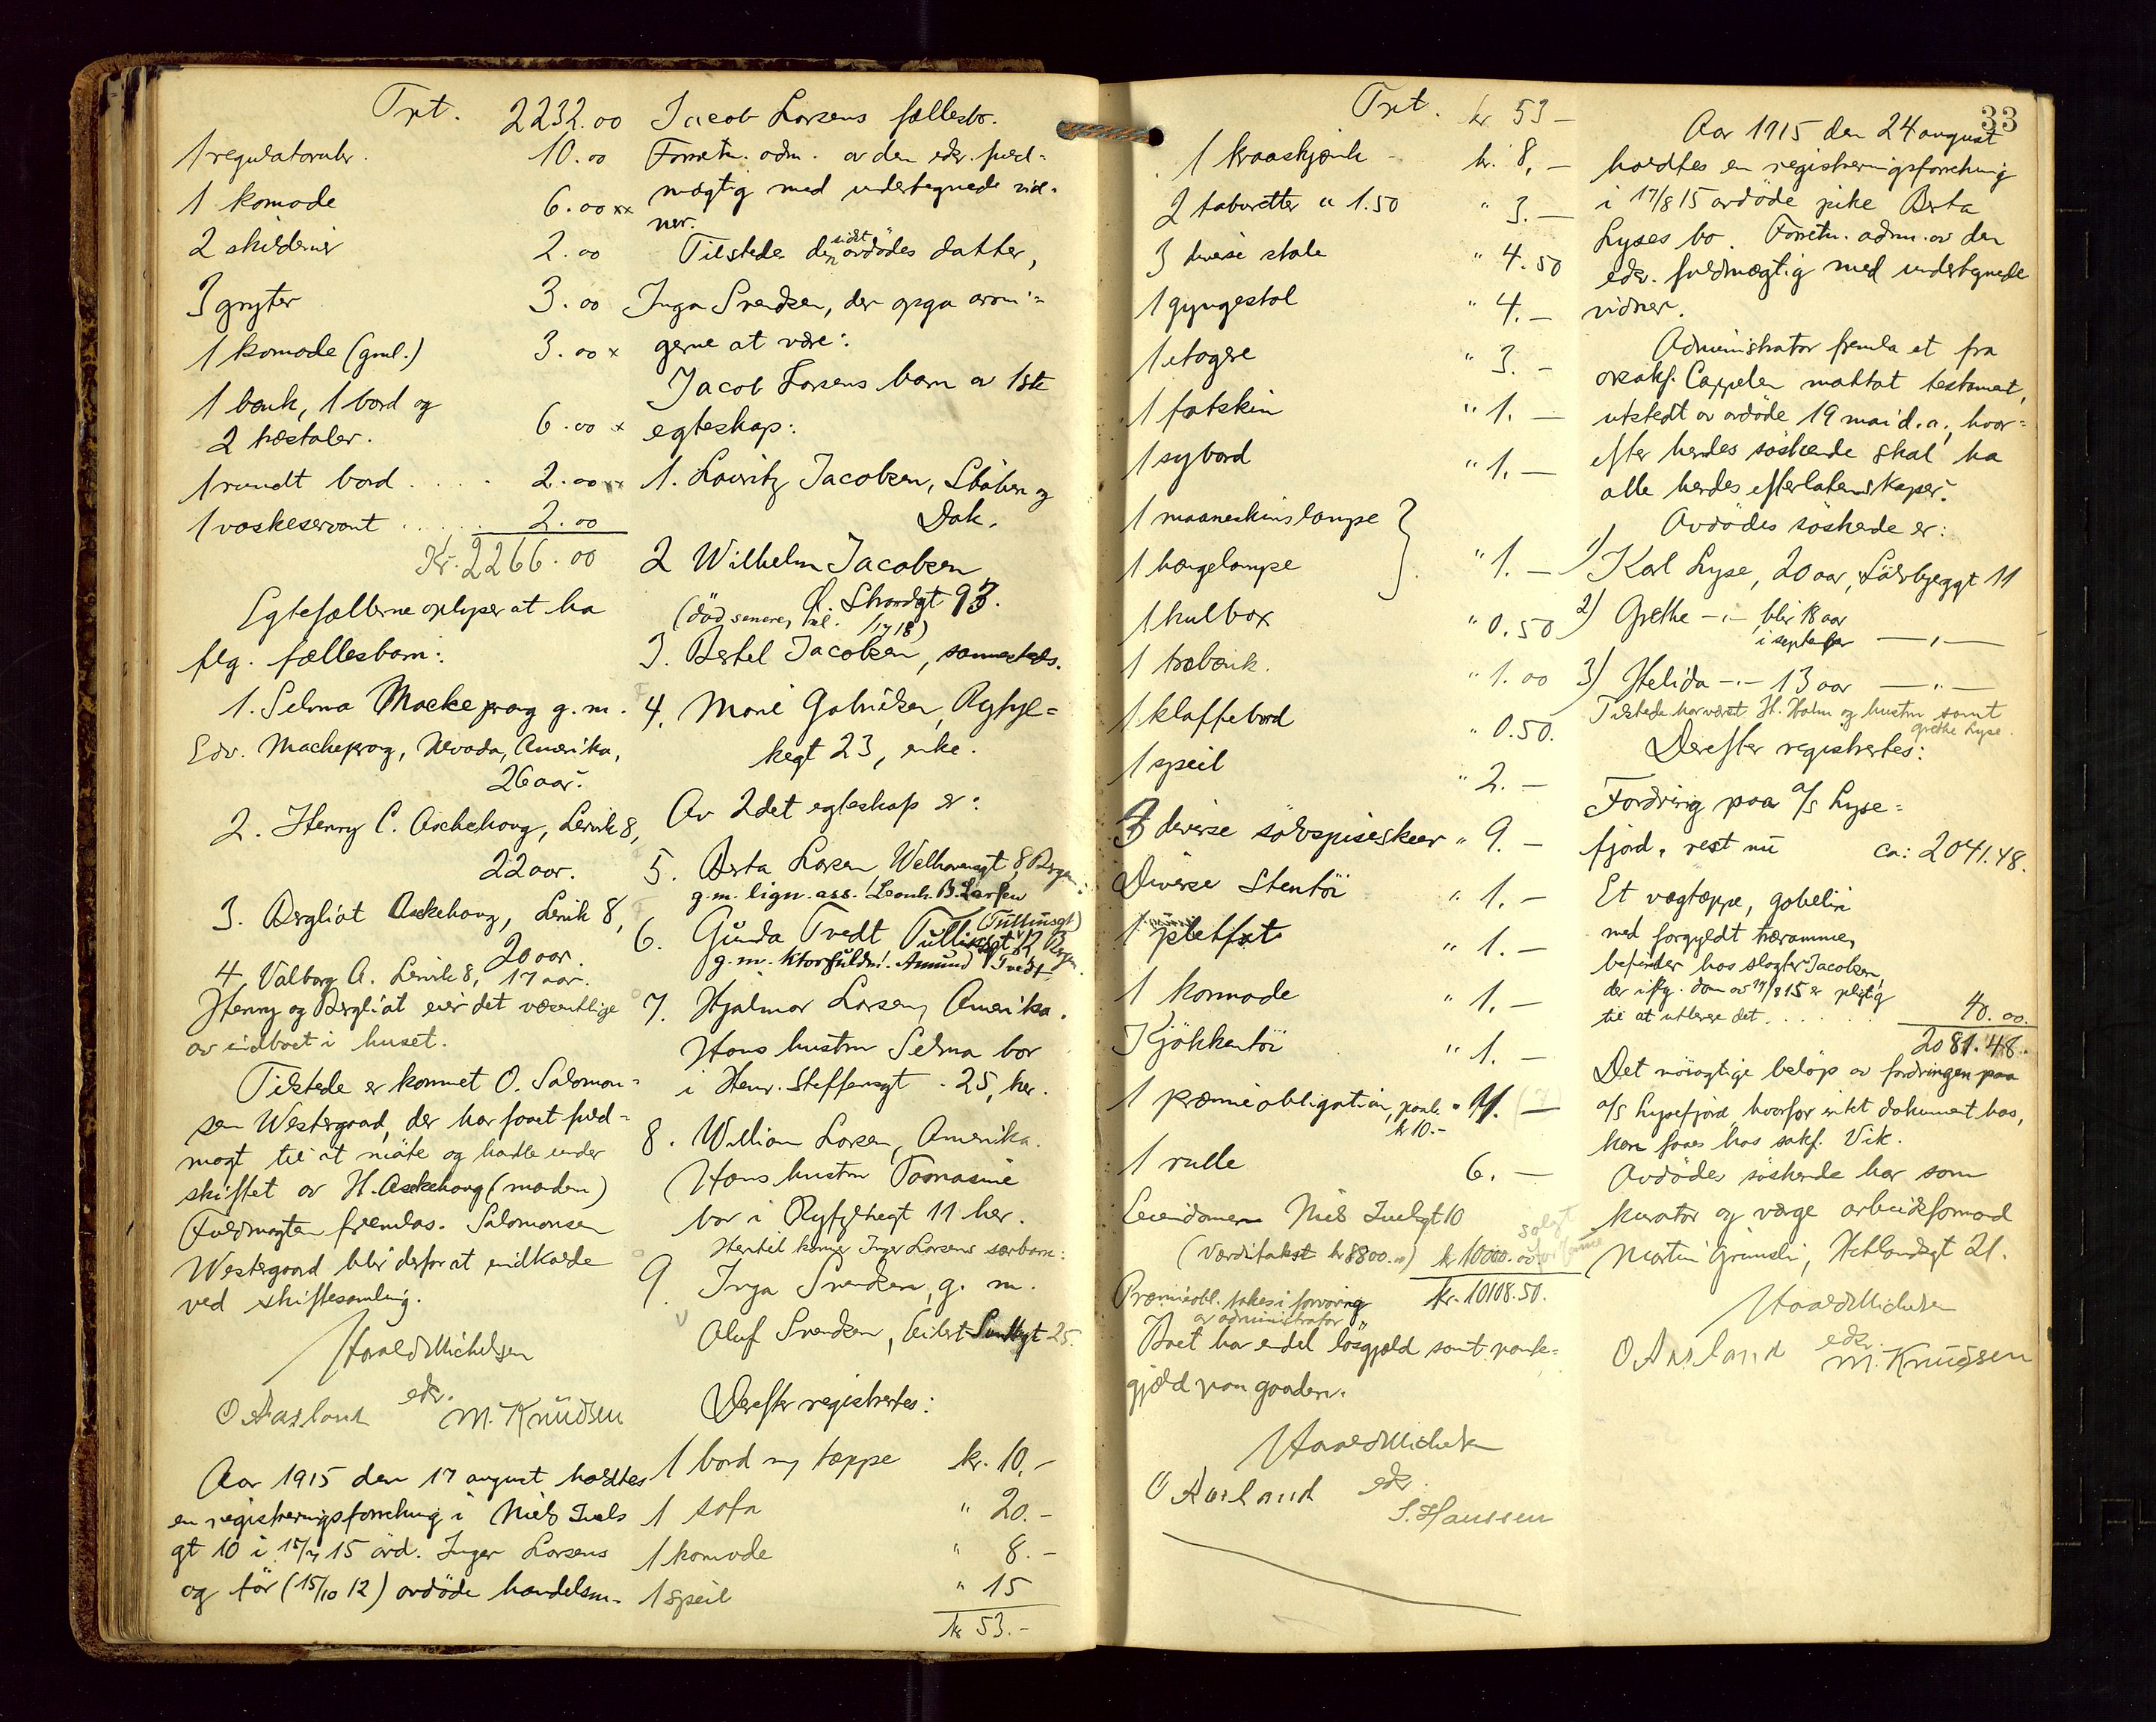 Trpt. 2232.00
1 regulatorubr. 10.00
1 komode 6.00 xx
2 skilderier 2.00
3 gryter 3.00
1 komode (gml.) 3.00 x
1 bænk, 1 bord og
2 træstoler. 6.00 x
1 rundt bord ..... 2.00 xx
1 vaskeservant ..... 2.00
Kr. 2266.00
Egtefællerne oplyser at ha
flg. fællesbarn:
1. Selma Mackeprang g. m.
Edv. Mackeprang, Nevada, Amerika,
26 aar.
2. Henry C. Aschehoug, Lervik 8,
22 aar.
3. Bergliot Askehoug, Lervik 8,
20 aar.
4. Valborg A. Lervik 8, 17 aar.
Henry og Bergliot eier det væsentlige
av indboet i huset.
Tilstede er kommet O. Salomon-
sen Westergaard, der har faaet fuld-
magt til at møte og handle under
skiftet av H. Askehoug (manden)
Fuldmagten fremlas. Salomonsen
Westergaard blir derfor at indkalde
ved skiftesamling.
Harald Michelsen
edsv.
O Aasland M. Knudsen
Aar 1915 den 17 august holdtes
en registreringsforretning i Niels Juels
gt 10 i 15/7 15 avd. Inger Larsens
og før (15/10 12) avdøde handelsm.
Jacob Larsens fællesbo.
Forretn. adm. av den edsv. fuld-
mægtig med undertegnede vid-
ner.
Tilstede den sidst avdødes datter,
Inga Svendsen, der opga arvin-
gerne at være:
Jacob Larsens barn av 1ste
egteskap:
1. Lauritz Jacobsen, Støberg
Dok.
2 Wilhelm Jacobsen
Ø. Strandgt 93.
(død senere, /17 18)
3. Bertel Jacobsen, sammesteds.
4. Marie Gabrielsen, Ryfyl-
kegt 23, enke.
Av 2det egteskap er:
5. Berta Larsen, Welhavensgt 8, Bergen
g.m. lign. ass. Leonh. B. Larsen
6. Gunda Tvedt (Tullinsgt)
g.m. ktorfuldm. Amund Tvedt
7. Hjalmar Larsen, Amerika.
Hans hustru Selma bor
i Henr. Steffensgt. 25, her.
8. William Larsen, Amerika.
Hans hustru Tomasine
bor i Ryfylkegt 11 her.
Hertil kommer Inger Larsens særbarn:
9. Inga Svendsen, g. m.
Oluf Svendsen, Eilert Sundtsgt 25.
Derefter registrertes:
1 bord m/ tæppe kr. 10.-
1 sofa " 20.-
1 komode " 8.-
1 speil " 15
kr 53.-
33
Trpt. kr 53 -
1 kraaskjænk - kr. 8, -
2 taburetter a 1.50 " 3. -
3 diverse stole " 4.50
1 gyngestol " 4. -
1 etagere " 3. -
1 fotskin " 1. -
1 sybord " 1. -
1 maaneskinslampe }
1 hængelampe } " 1. -
1 kulbox " 0.50
1 træbænk. " 1.00
1 klaffebord " 0.50.
1 speil " 2. -
3 diverse sølvspiseskeer " 9. -
Diverse Stentøi " 1. -
1 pletfat " 1. -
1 kommode " 1. -
Kjøkkentøi " 1. -
1 præmieobligation, paal. " 11. -
kr 10.-
1 rulle 6. -
Eiendommen Niels Juelsgt 10 solgt
(Værditakst kr 8800.00) kr 10000.00
kr. 10108.50.
Præmieobl. takes i forvaring
av administrator
Boet har endel løsgjæld samt pante-
gjæld paa gaarden.
Harald Michelsen
edsv.
O Aasland S. Hanssen
Aar 1915 den 24 august
holdtes en registreringsforretning
i 17/8 15 avdøde pike Berta
Lyses bo. Forretn. adm. av den
edsv. fuldmægtig med undertegnede
vidner.
Administrator fremla et fra
oraksf. Cappelen mottat testament,
utstedt av avdøde 19 mai d.a., hvor-
efter hendes søskende skal ha
alle hendes efterlatenskaper.
Avdødes søskende er:
1) Karl Lyse, 20 aar, Sølvbjerggt 11
2) Grethe -"- blir 18 aar
i september -"-
3) Helida -"- 13 aar -"-
Tilstede har været H. Holm og hustru samt
Grethe Lyse.
Derefter registrertes:
Fordring paa a/s Lyse-
fjord, rest nu ca: 2041.48.
Et vægtæppe, gobelin
med forgyldt træramme,
befinder hos slagter Jacobsen,
der iflg. dom av 17/8 15 er pligtig
til at utlevere det ...... 40.00.
2081.48.
Det nøiagtige beløp av fordringen paa
a/s Lysefjord, hvorfor intet dokument haves,
kan faaes hos sakf. Vik.
Avdødes søskende har som
kurator og værge arbeidsformand
Martin Grimsli, Hetlandsgt 21.
Harald Michelsen
edsv.
O Aasland M. Knudsen